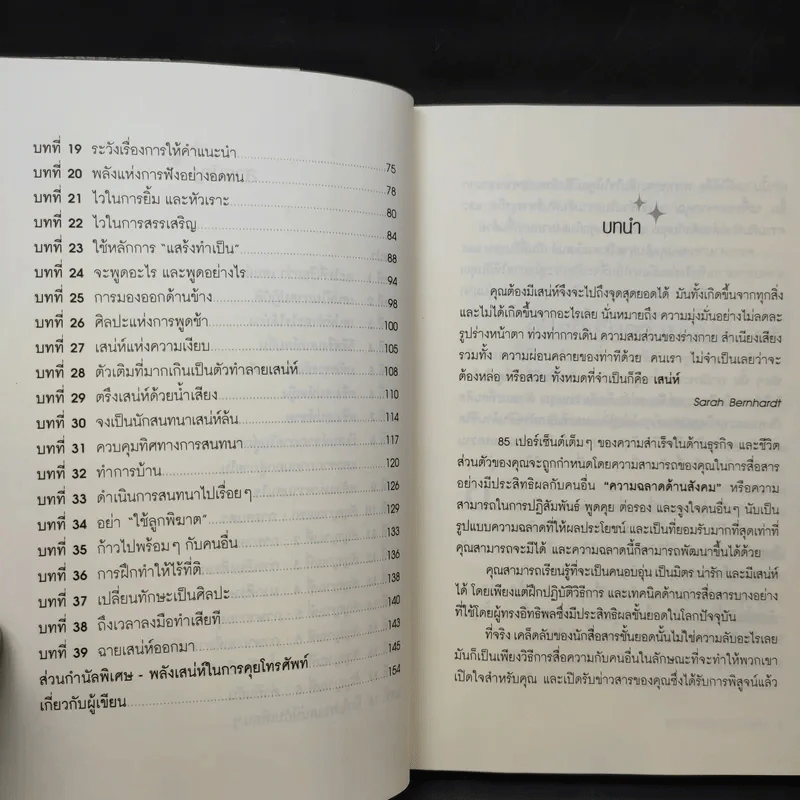 บทที่ 19 ระวังเรื่องการให้คำแนะนำ 75
บทที่ 20 พลังแห่งการฟังอย่างอดทน 78
บทที่ 21 ไวในการยิ้ม และหัวเราะ 80
บทที่ 22 ไวในการสรรเสริญ 84
บทที่ 23 ใช้หลักการ "แสร้งทำเป็น" 88
บทที่ 24 จะพูดอะไร และพูดอย่างไร 94
บทที่ 25 การมองออกด้านข้าง 98
บทที่ 26 ศิลปะแห่งการพูดช้า 100
บทที่ 27 เสน่ห์แห่งความเงียบ 105
บทที่ 28 ตัวเติมที่มากเกินเป็นตัวทำลายเสน่ห์ 108
บทที่ 29 ตรึงเสน่ห์ด้วยน้ำเสียง 110
บทที่ 30 จงเป็นนักสนทนาเสน่ห์ล้น 114
บทที่ 31 ควบคุมทิศทางการสนทนา 117
บทที่ 32 ทำการบ้าน 120
บทที่ 33 ดำเนินการสนทนาไปเรื่อยๆ 126
บทที่ 34 อย่า "ใช้ลูกพิฆาต" 129
บทที่ 35 ก้าวไปพร้อมๆ กับคนอื่น 133
บทที่ 36 การฝึกทำให้ไร้ที่ติ 136
บทที่ 37 เปลี่ยนทักษะเป็นศิลปะ 138
บทที่ 38 ถึงเวลาลงมือทำเสียที 140
บทที่ 39 ฉายเสน่ห์ออกมา 143
ส่วนกำนัลพิเศษ - พลังเสน่ห์ในการคุยโทรศัพท์ 145
เกี่ยวกับผู้เขียน 154
บทนำ
คุณต้องมีเสน่ห์จึงจะไปถึงจุดสุดยอดได้ มันทั้งเกิดขึ้นจากทุกสิ่ง
และไม่ได้เกิดขึ้นจากอะไรเลย นั่นหมายถึง ความมุ่งมั่นอย่างไม่ลดละ
รูปร่างหน้าตา ท่วงท่าการเดิน ความสมส่วนของร่างกาย สำเนียงเสียง
รวมทั้ง ความผ่อนคลายของท่าทีด้วย คนเรา ไม่จำเป็นเลยว่าจะ
ต้องหล่อ หรือสวย ทั้งหมดที่จำเป็นก็คือ เสน่ห์
Sarah Bernhardt
85 เปอร์เซ็นต์เต็มๆ ของความสำเร็จในด้านธุรกิจ และชีวิต
ส่วนตัวของคุณจะถูกกำหนดโดยความสามารถของคุณในการสื่อสาร
อย่างมีประสิทธิผลกับคนอื่น "ความฉลาดด้านสังคม" หรือความ
สามารถในการปฏิสัมพันธ์ พูดคุย ต่อรอง และจูงใจคนอื่นๆ นับเป็น
รูปแบบความฉลาดที่ให้ผลประโยชน์ และเป็นที่ยอมรับมากที่สุดเท่าที่
คุณสามารถจะมีได้ และความฉลาดนี้ก็สามารถพัฒนาขึ้นได้ด้วย
คุณสามารถเรียนรู้ที่จะเป็นคนอบอุ่น เป็นมิตร น่ารัก และมีเสน่ห์
ได้ โดยเพียงแต่ฝึกปฏิบัติวิธีการ และเทคนิคด้านการสื่อสารบางอย่าง
ที่ใช้โดยผู้ทรงอิทธิพลซึ่งมีประสิทธิผลขั้นยอดในโลกปัจจุบัน
ที่จริง เคล็ดลับของนักสื่อสารชั้นยอดนั้นไม่ใช่ความลับอะไรเลย
มันก็เป็นเพียงวิธีการสื่อความกับคนอื่นในลักษณะที่จะทำให้พวกเขา
เปิดใจสำหรับคุณ และเปิดรับข่าวสารของคุณซึ่งได้รับการพิสูจน์แล้ว